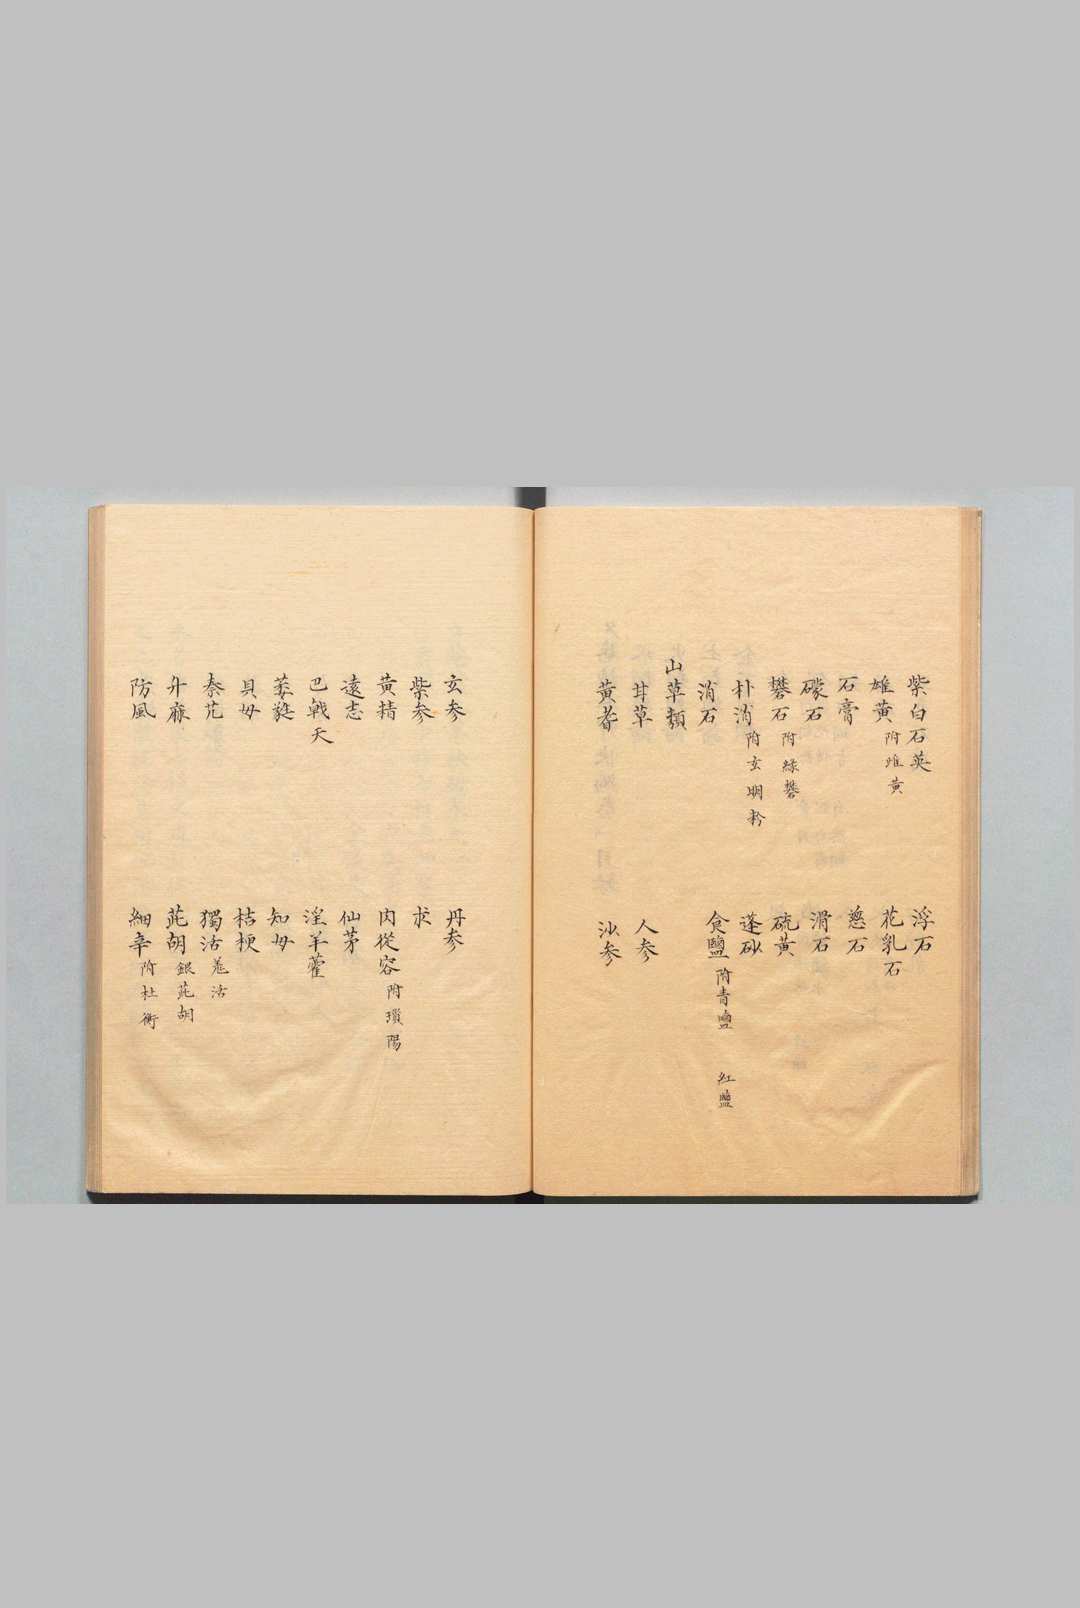 紫白石英　浮石
雄黄附雌黄　花乳石
石膏　慈石
礞石　滑石
礬石附緑礬　硫黄
朴消附玄明粉　蓬砂
消石　食鹽附青鹽　紅鹽
山草類
甘草　人参
黄耆　沙参
玄参　丹参
紫参　朮
黄精　肉從容附瑣陽
遠志　仙茅
巴戟天　淫羊藿
萎蕤　知母
貝母　桔梗
秦艽　獨活羌活
升麻　茈胡銀茈胡
防風　細辛附杜衡